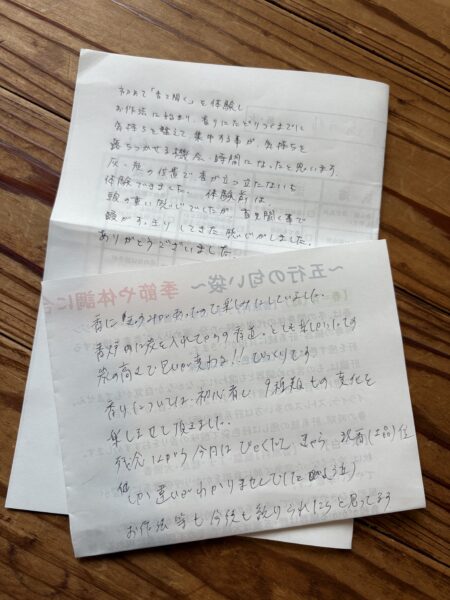 初めて「香を聞く」を体験し
お作法に始まり、香りにたどりつくまでに
気持ちを整えて、集中する事が、気持ちを
落ちつかせる機会・時間になったと思います。
灰・炭の位置で香が立つ立たないも
体験できました。体験前は、
頭の重い感じでしたが、香を聞く事で
頭がすっきりしてきた感じがしました。
ありがとうございました。
〜五行の匂い袋〜 季節や体調に
香に興味があったので楽しみにしていました。
香炉の中に炭を入れてからの香道、とても楽しかったです
炭の高さで匂いが変わる!!びっくりです
香りについては初心者で、9種類もの変化を
楽しませして頂きました。
残念ながら今月はひくくて、きゃら、沈香(上品)位
しか違いがわかりませんでした
お作法等も今後も知りられたらと思ってます